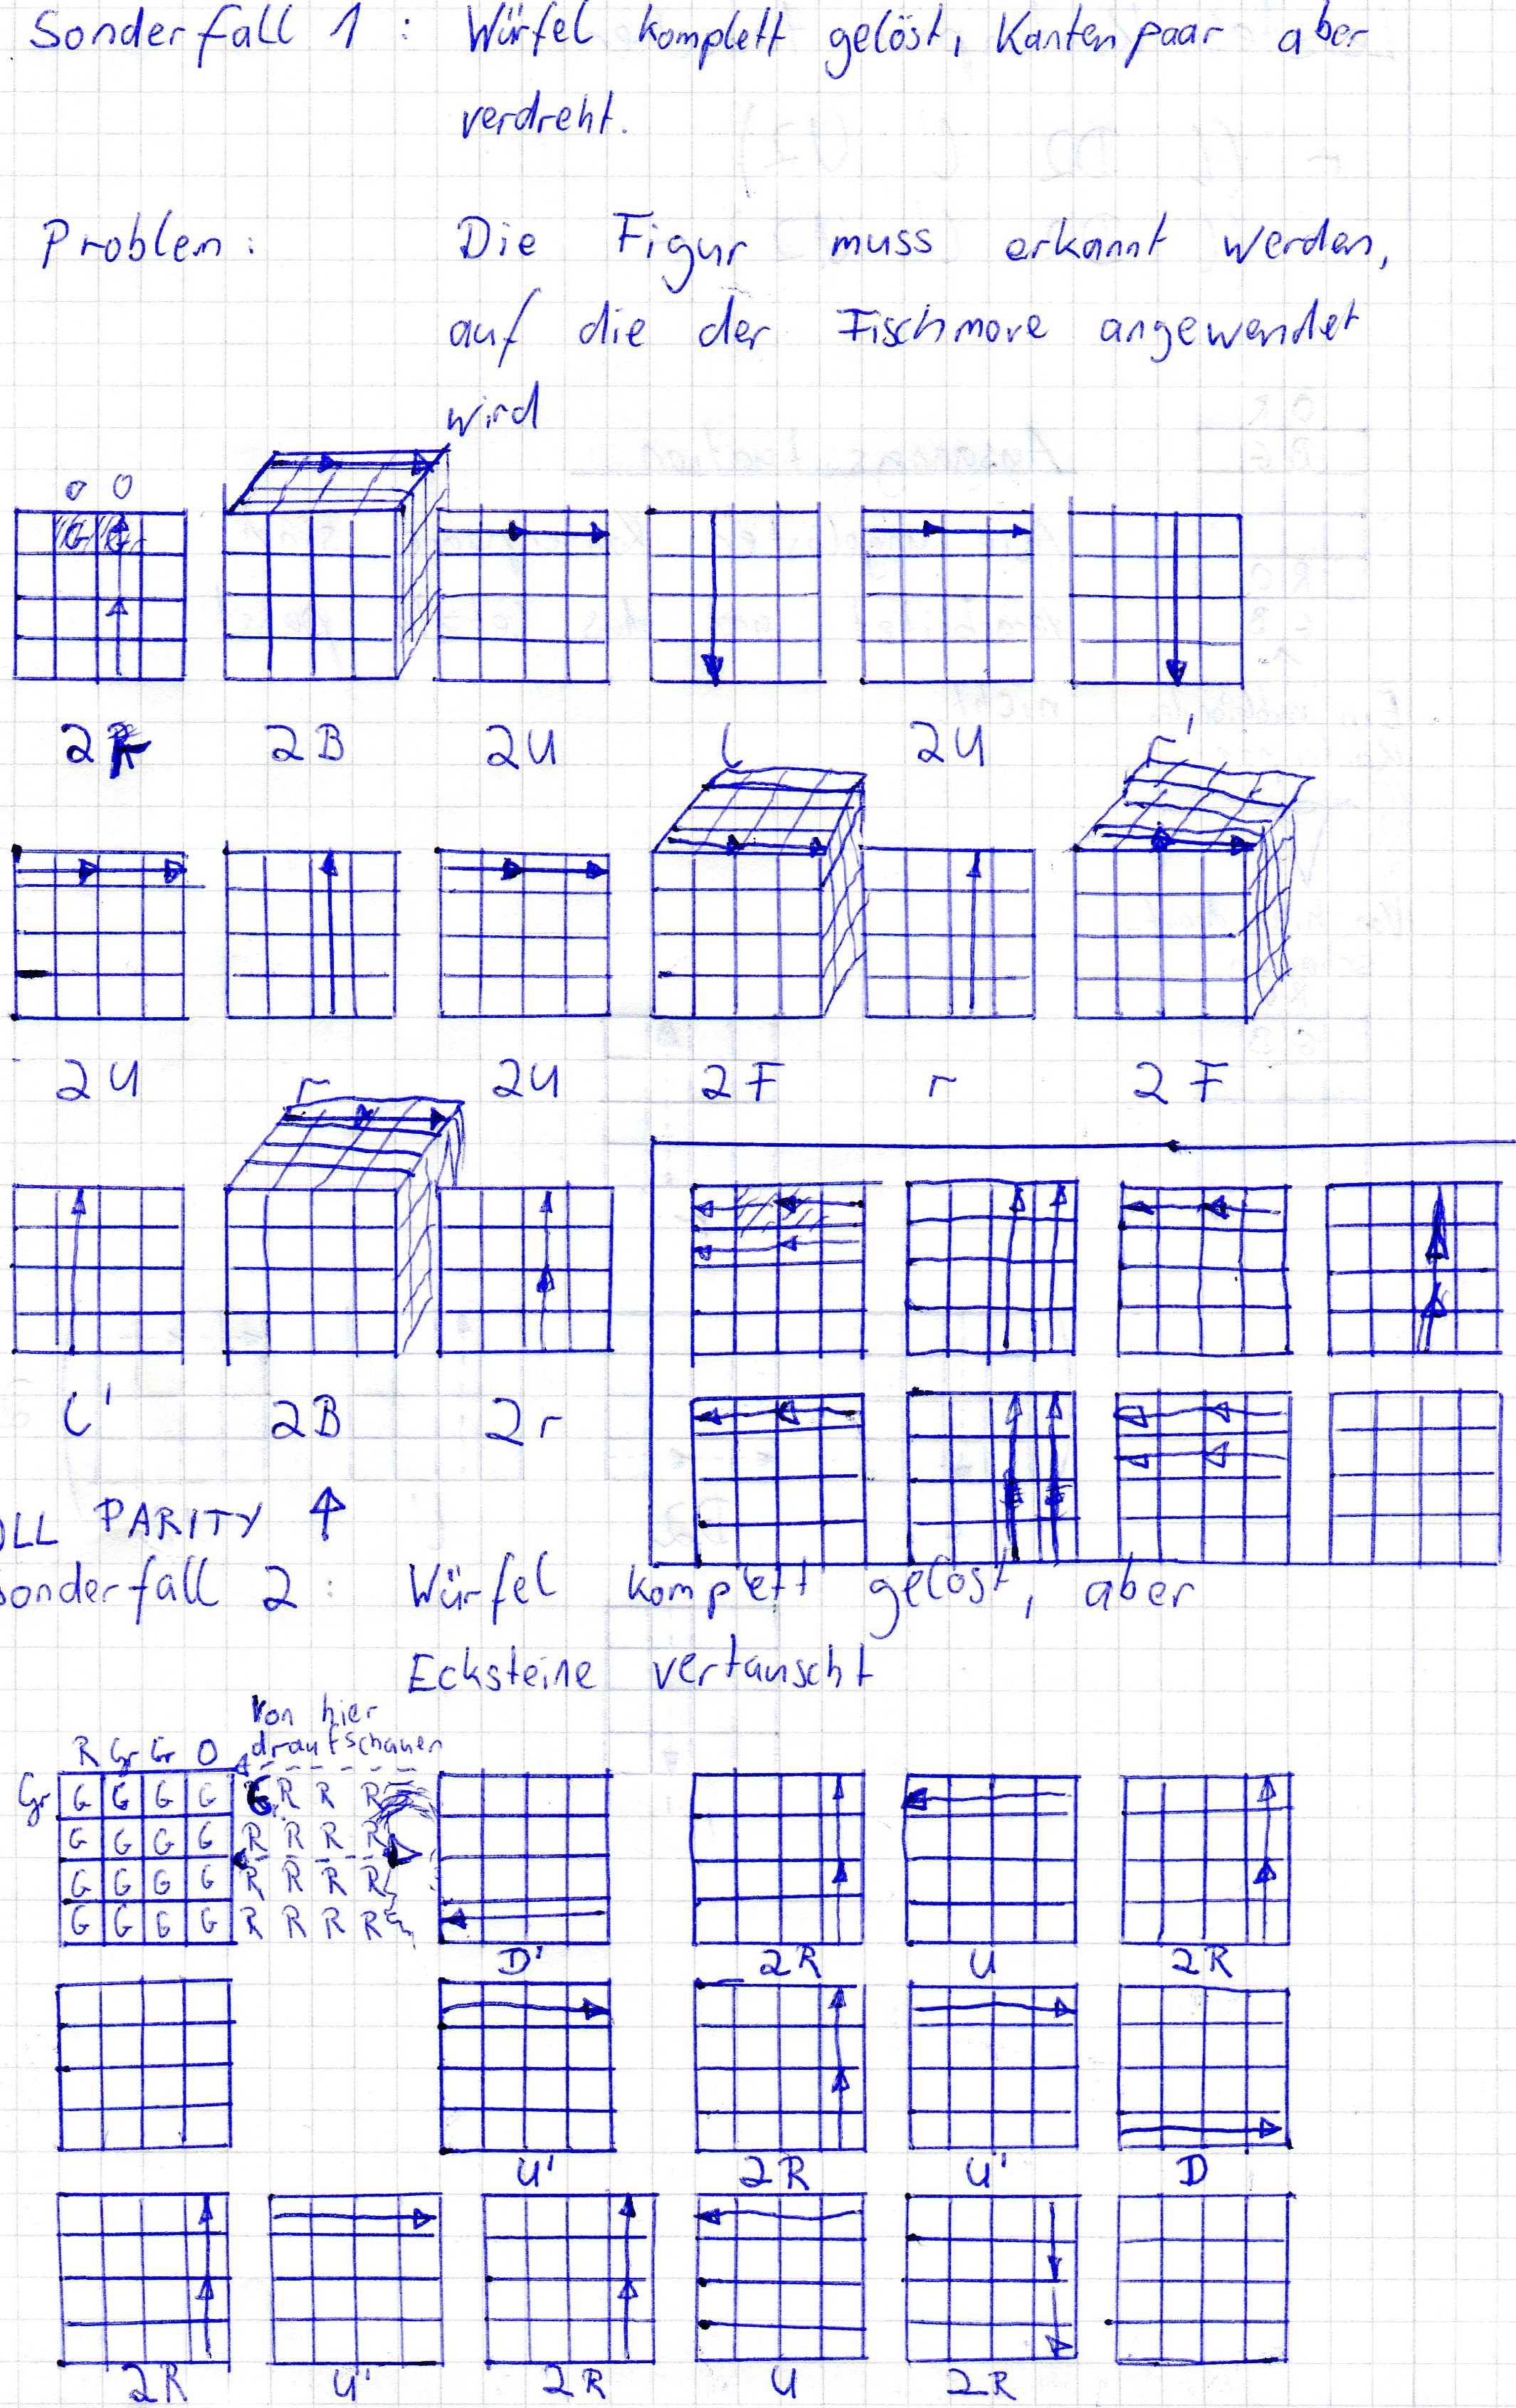 Sonderfall 1 : Würfel komplett gelöst, Kantenpaar aber
verdreht.
Problem : Die Figur muss erkannt werden,
auf die der Fischmove angewendet
wird
O O
G Gr
2r 2B 2U l 2U r'
2U r 2U 2F r 2F
l' 2B 2r
OLL PARITY ↑
Sonderfall 2 : Würfel komplett gelöst, aber
Ecksteine vertauscht
Von hier
draufschauen
R Gr Gr O
Gr G G G G G R R R
G G G G R R R R
G G G G R R R R
G G G G R R R R
D' 2R U 2R
U' 2R U' D
2R U' 2R U 2R